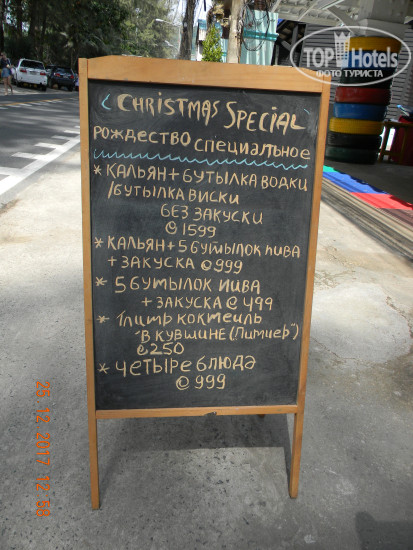 TOPHotels
ФОТО ТУРИСТА
CHRISTMAS SPECIAL
РОЖДЕСТВО СПЕЦИАЛЬНОЕ
* КАЛЬЯН + БУТЫЛКА ВОДКИ
/БУТЫЛКА ВИСКИ
БЕЗ ЗАКУСКИ
@ 1599
* КАЛЬЯН + 5 БУТЫЛОК ПИВА
+ ЗАКУСКА @ 999
* 5 БУТЫЛОК ПИВА
+ ЗАКУСКА @ 499
* 1 ЛИТР КОКТЕИЛЬ
"В КУВШИНЕ (ПИТЧЕР")
@ 250
* ЧЕТЫРЕ БЛЮДА
@ 999
25 12 2017